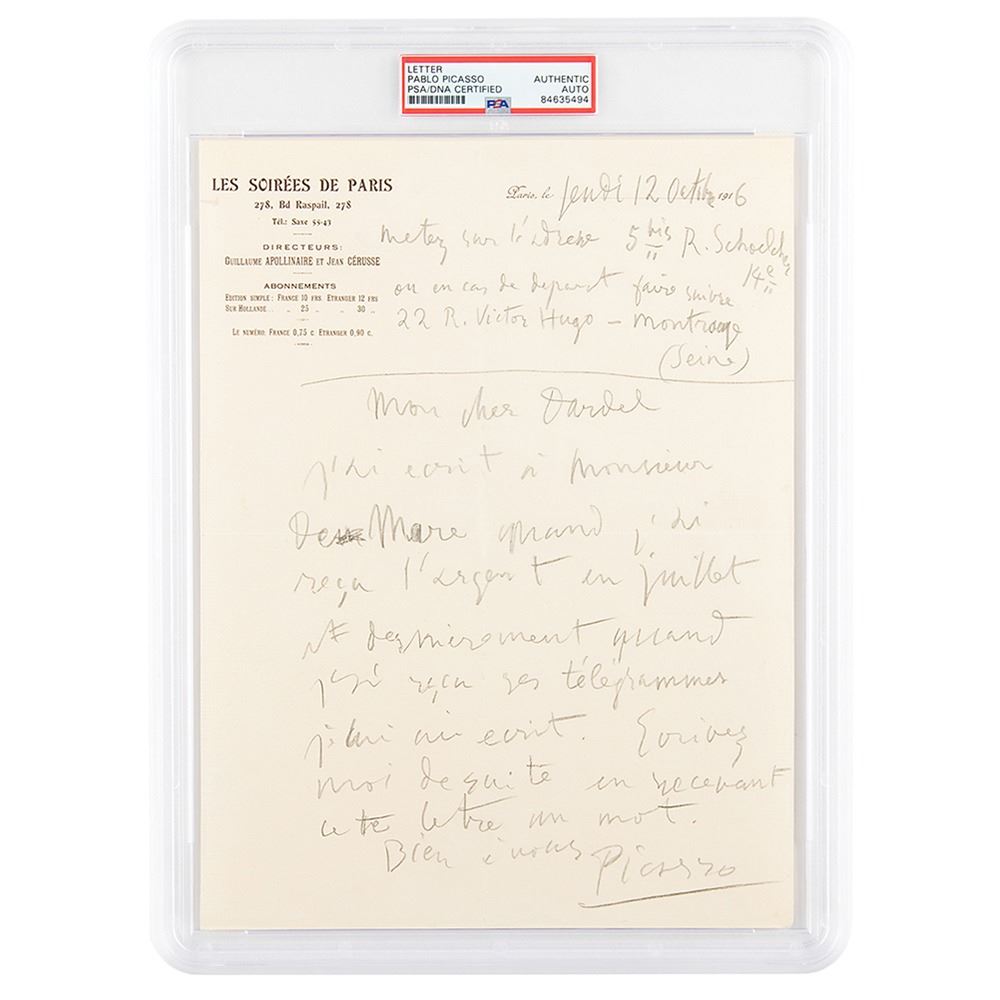 LETTER
PABLO PICASSO
PSA/DNA CERTIFIED
AUTHENTIC
AUTO
84635494
PSA
LES SOIRÉES DE PARIS
278, Bd Raspail, 278
Tél.: Saxe 55-43
DIRECTEURS:
GUILLAUME APOLLINAIRE ET JEAN CÉRUSSE
ABONNEMENTS
EDITION SIMPLE: FRANCE 10 FRS. ETRANGER 12 FRS
SUR HOLLANDE . . „ 25 „ „ 30 „
LE NUMÉRO: FRANCE 0,75 c. ETRANGER 0,90 c.
Paris, le jeudi 12 Octobre 1916
metez sur l'adrese 5 bis R. Schoelcher
14e
ou en cas de depart faire suivre
22 R. Victor Hugo – montrouge
(Seine)
Mon cher Dardel
j'ai ecrit à Monsieur
De Mare quand j'ai
reçu l'argent en juillet
et dernierement quand
j'ai reçu ses télégrammes
j lui ai ecrit. Ecrivez
moi de suite en recevant
cette letre un mot.
Bien à vous
Picasso